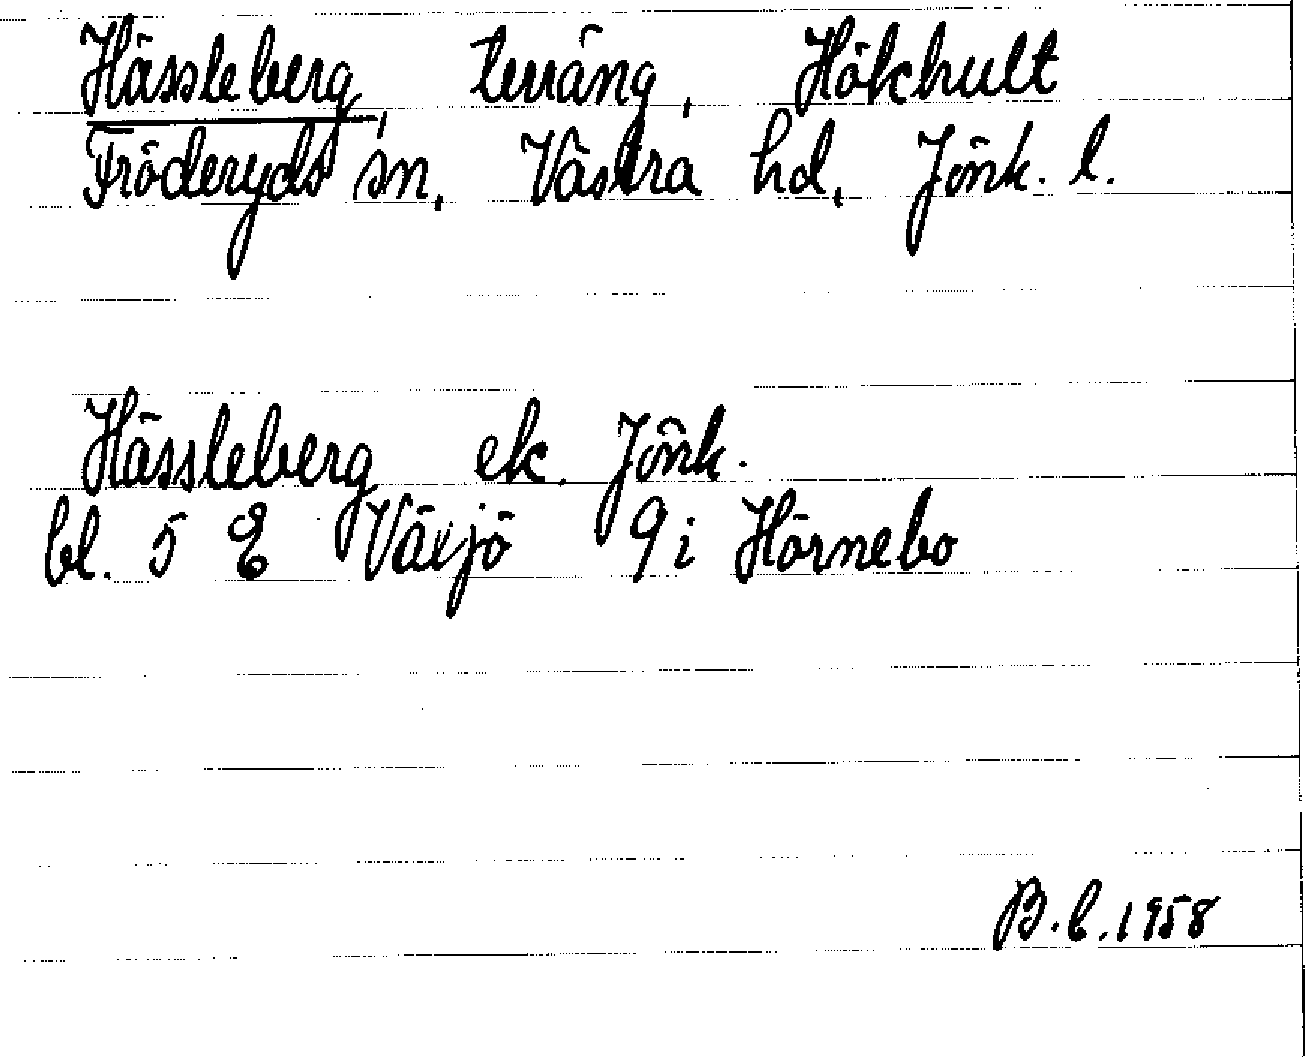 Hässleberg, terräng, Hökhult
Fröderyds sn, Västra hd, Jönk. l.
Hässleberg ek. Jönk.
bl. 5 E Växjö 9 i Hörnebo
B.l.1958